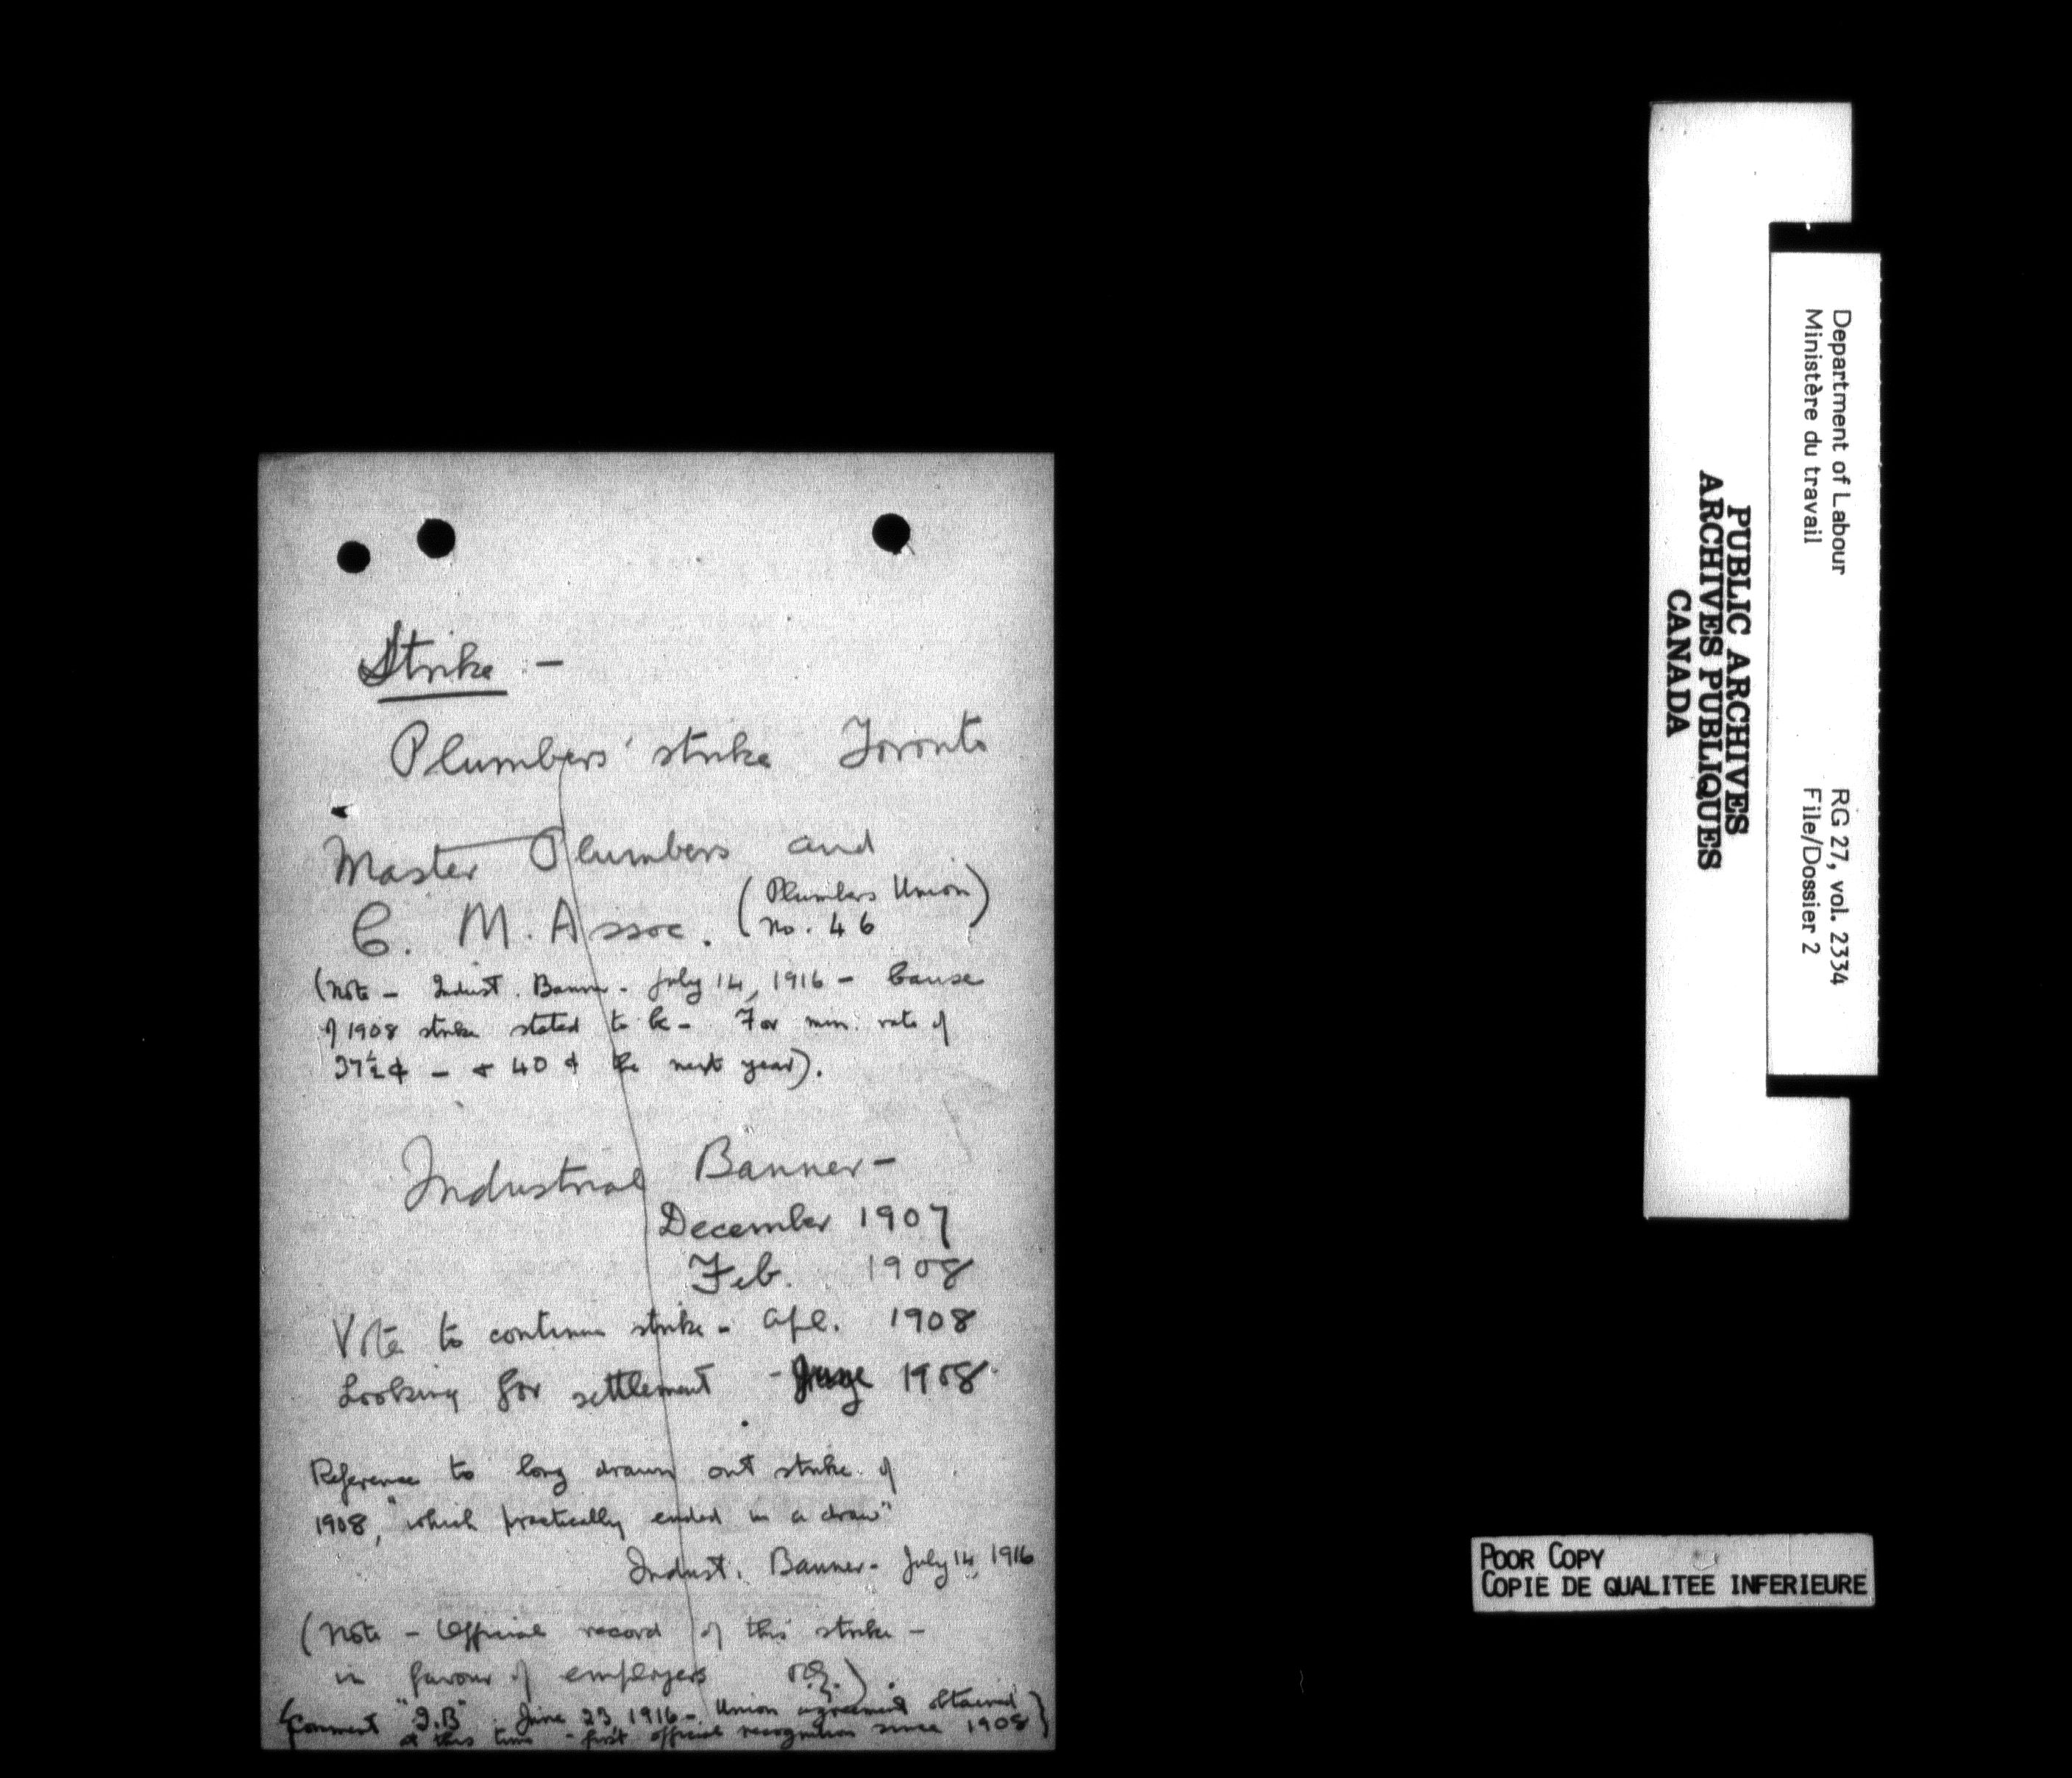 Strike –
Plumbers' strike Toronto
Master Plumbers and
C. M. Assoc. (Plumbers Union
no. 46)
(Note – Indust. Banner – July 14, 1916 – Cause
of 1908 strike stated to be – For min. rate of
37½¢ – & 40¢ the next year).
Industrial Banner –
December 1907
Feb. 1908
Vote to continue strike – Apl. 1908
Looking for settlement – 1908.
Reference to long drawn out strike of
1908, "which practically ended in a draw"
Indust. Banner – July 14, 1916
(Note – Official record of this strike –
in favour of employers)
(Comment "I.B". June 23, 1916 – Union agreement obtained
at this time – first official recognition since 1908)
Department of Labour
Ministère du travail
RG 27, vol. 2334
File/Dossier 2
PUBLIC ARCHIVES
ARCHIVES PUBLIQUES
CANADA
POOR COPY
COPIE DE QUALITEE INFERIEURE